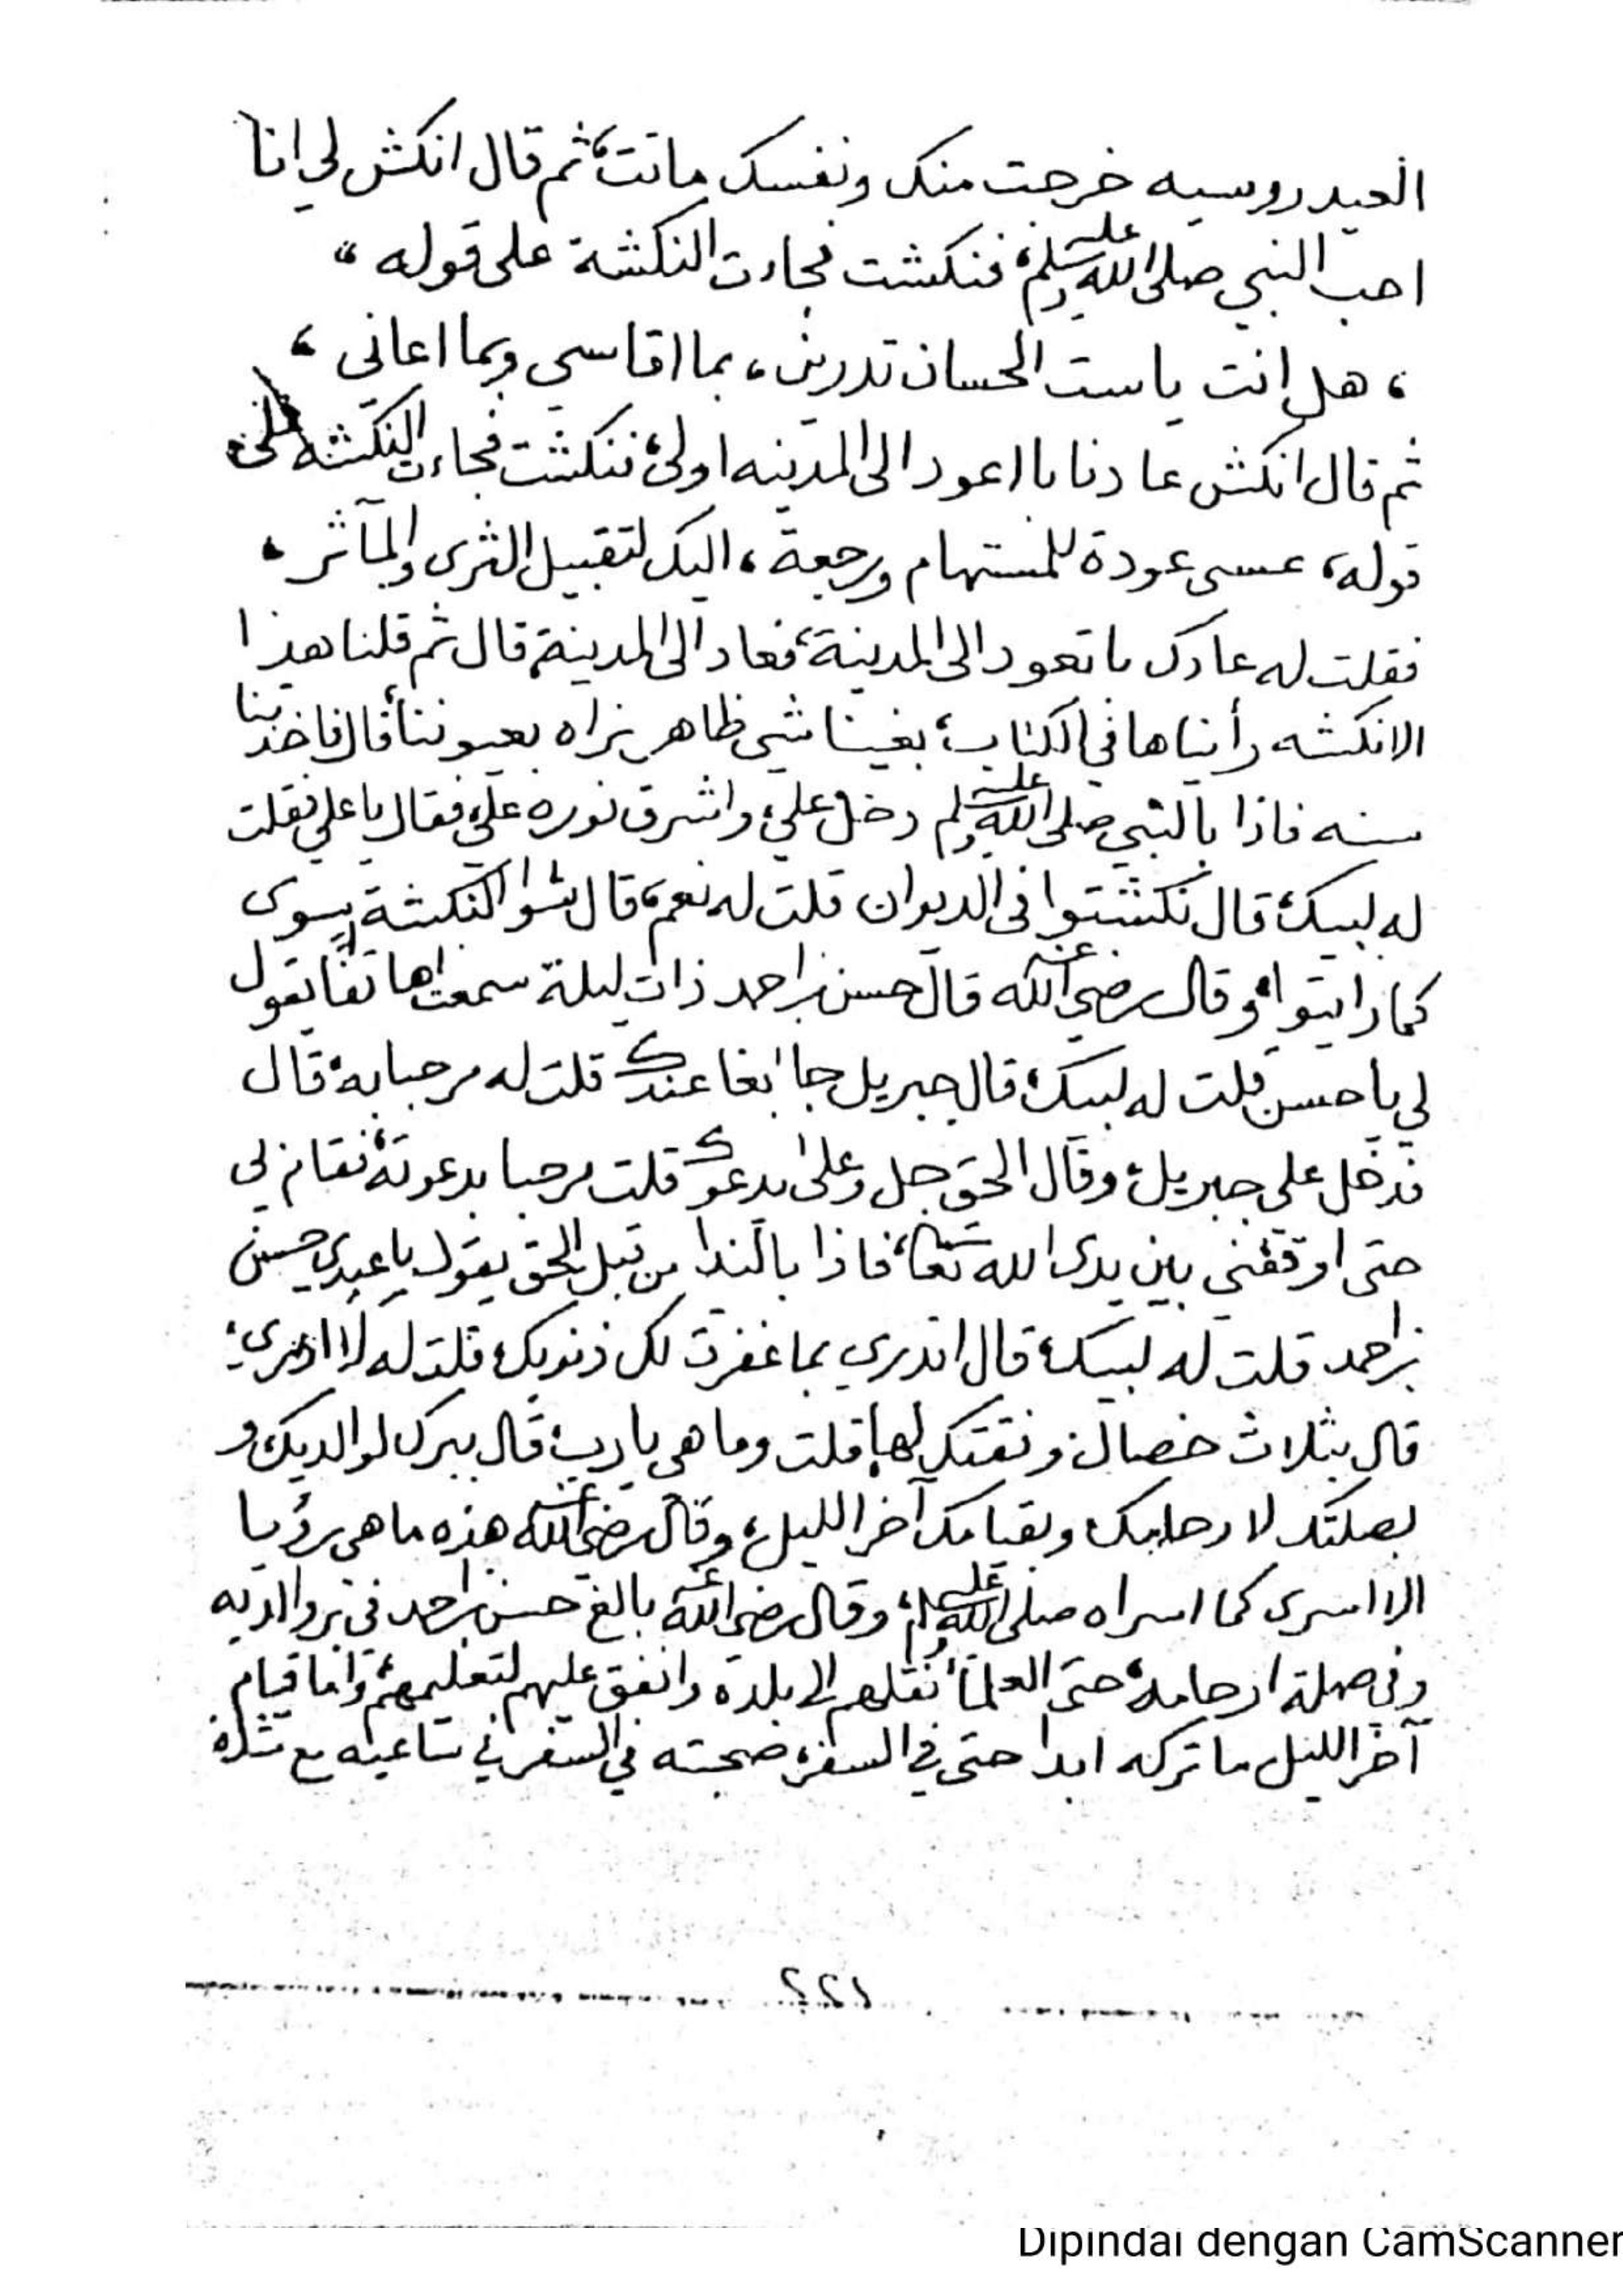 العيدروسيه خرجت منك ونفسك ماتت، ثم قال انكش لي انا
احب النبي صلى الله عليه وسلم، فنكشت فجاءت النكشة على قوله "
، هل انت ياست الحسان تدرين، بما اقاسي وبما اعاني ،
ثم قال انكش عادنا باأعود الى المدينه اولى، فنكشت فجاءت النكشه على
قوله، عسى عودة للمستهام ورجعة، اليك لتقبيل الثرى والمآثر،
فقلت له عادك باتعود الى المدينة، فعاد الى المدينة، قال ثم قلنا هذا
الانكشه رأيناها في الكتاب، بغينا شي ظاهر نراه بعيوننا، قال فاخذنا
سنه فاذا بالنبي صلى الله عليه وسلم دخل علي، واشرق نوره علي، فقال ياعلي فقلت
له لبيك، قال نكشتوا في الديوان قلت له نعم، قال النكشة يسوى
كما رايتوا، وقال رضي الله عنه قال حسن بن احمد ذات ليلة سمعت هاتفا يقول
لي ياحسن قلت له لبيك، قال جبريل جا ابغا عندك قلت له مرحبا به، قال
فدخل علي جبريل، وقال الحق جل وعلى يدعوك قلت مرحبا بدعوته، فقام بي
حتى اوقفني بين يدى الله تعالى، فاذا بالندا من قبل الحق يقول ياعبدي حسن
بن احمد قلت له لبيك، قال اتدري بما غفرت لك ذنوبك، قلت له لا ادري،
قال بثلاث خصال وفقتك لها، قلت وما هي يارب، قال ببرك لوالديك، و
بصلتك لارحامك، وبقيامك آخر الليل، وقال رضي الله عنه هذه ما هي رؤيا
الا اسرى كما اسراه صلى الله عليه وسلم، وقال رضي الله عنه بالغ حسن بن احمد في بر والديه
وفي صلة ارحامه، حتى العلما، نقلهم الى بلده وانفق عليهم لتعليمهم، واما قيام
آخر الليل ما تركه ابدا حتى في السفر، صحبته في السفر في ساعيه مع
١٢٢
Dipindai dengan CamScanner